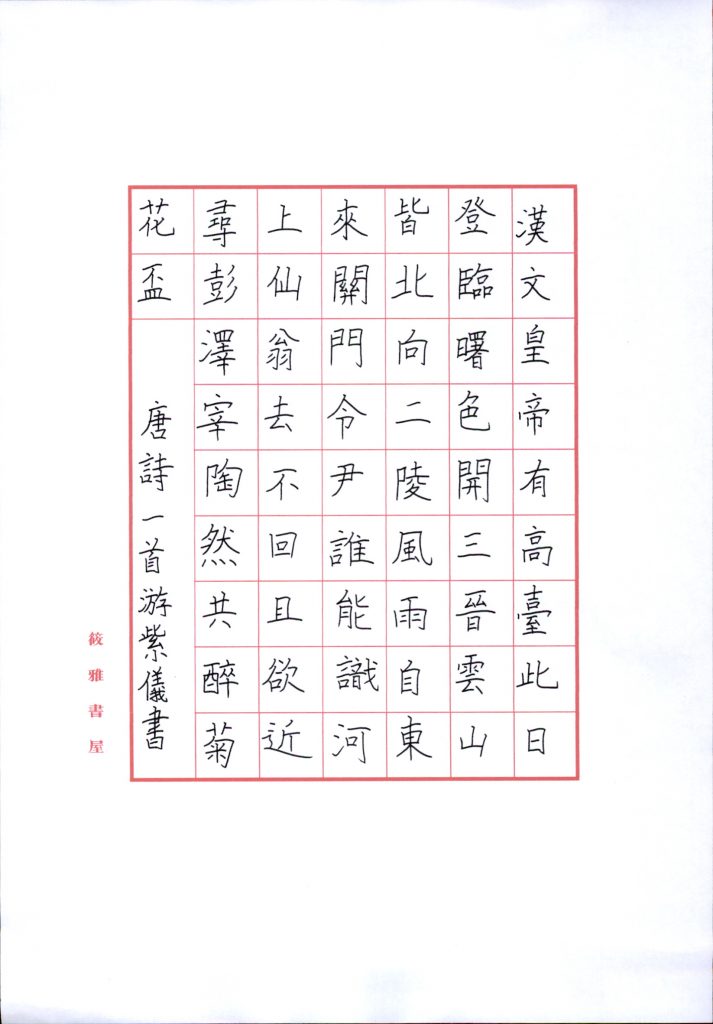 漢文皇帝有高臺此日
登臨曙色開三晉雲山
皆北向二陵風雨自東
來關門令尹誰能識河
上仙翁去不回且欲近
尋彭澤宰陶然共醉菊
花盃
唐詩一首游紫儀書
筱雅書屋